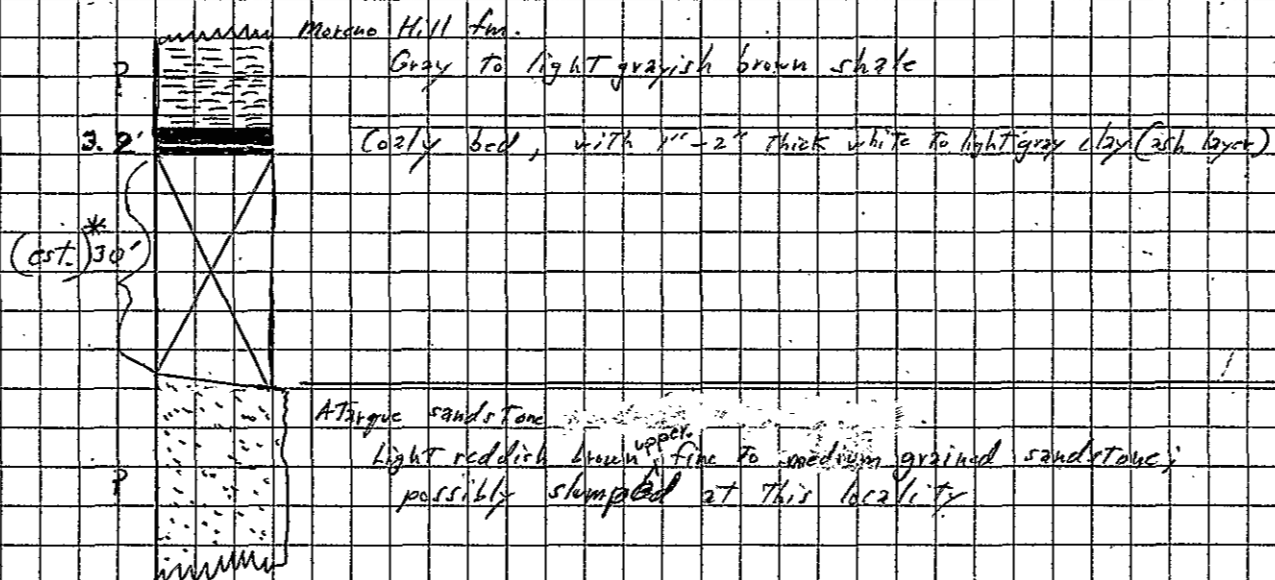 Moreno Hill fm.
? Gray to light grayish brown shale
3.2' Coaly bed, with 1"-2" thick white to light gray clay (ash layer)
(est.)* 30'
Atarque sandstone
upper
Light reddish brown, fine to medium grained sandstone;
? possibly slumped at this locality